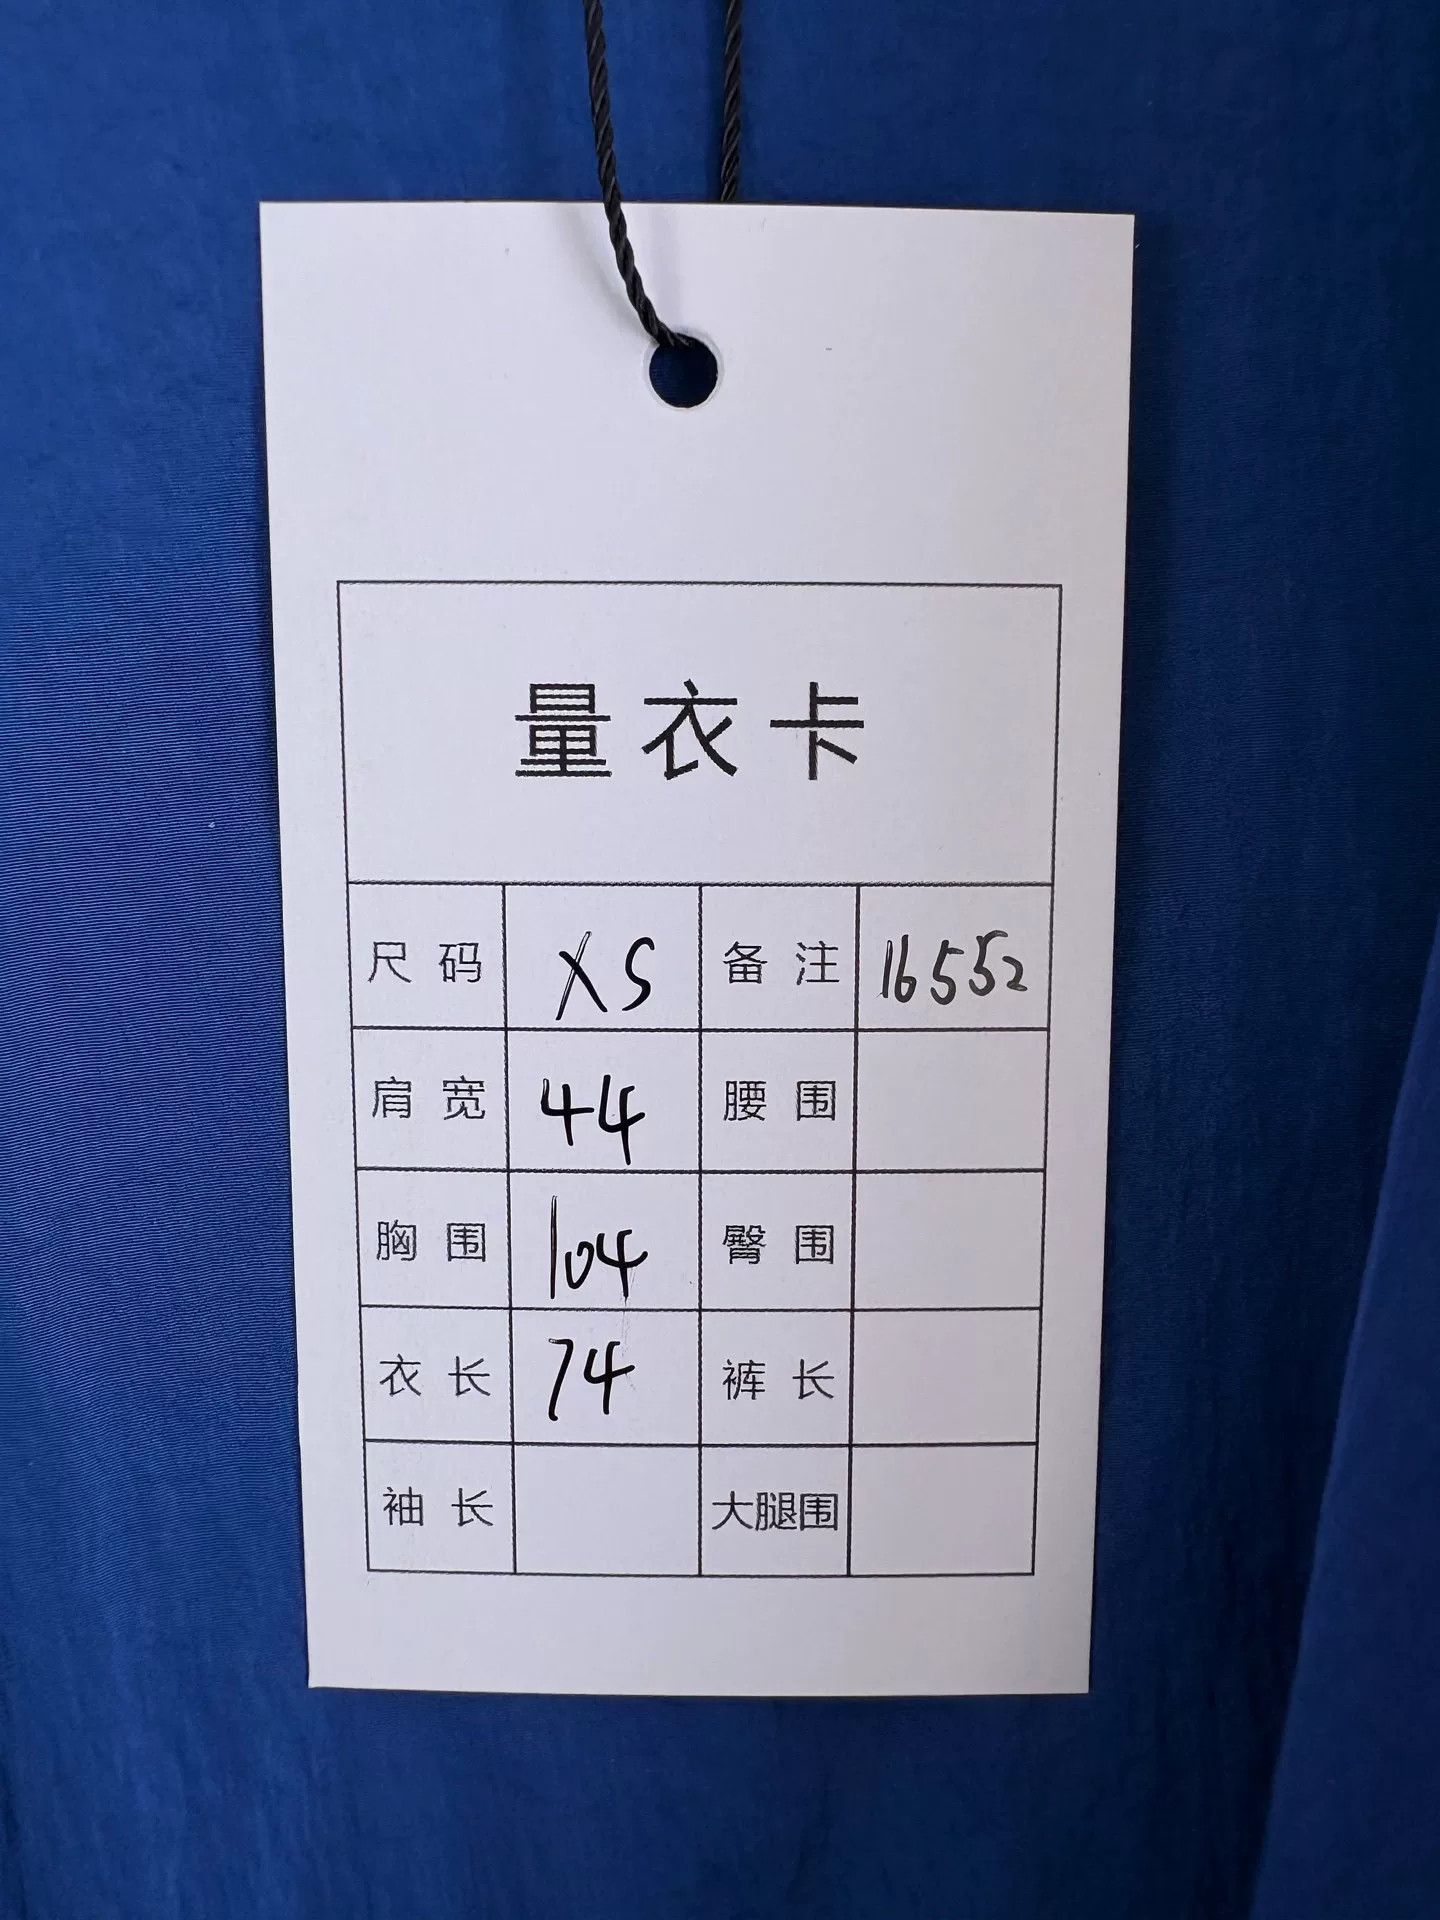 量衣卡
尺码 XS 备注 16552
肩宽 44 腰围
胸围 104 臀围
衣长 74 裤长
袖长 大腿围